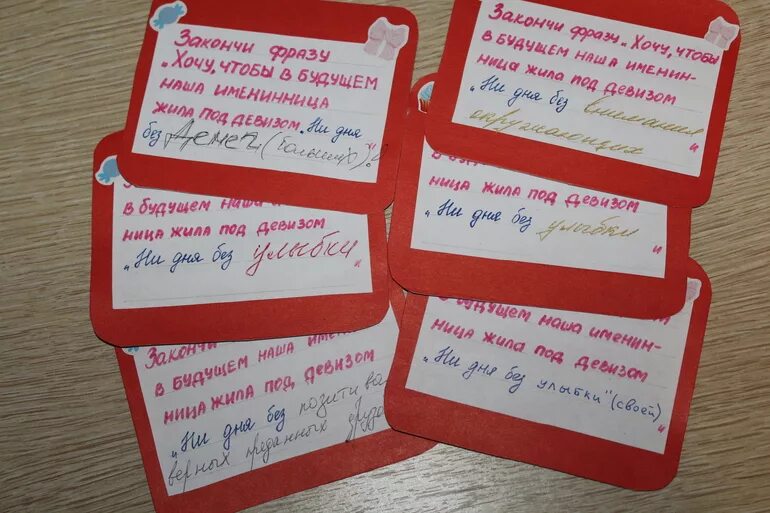 Закончи фразу
„Хочу, чтобы в будущем
наша именинница
жила под девизом „Ни дня
без денег (больших)!"
Закончи фразу „Хочу, чтобы
в будущем наша именин-
ница жила под девизом
„Ни дня без внимания
окружающих"
в будущем наша
ница жила под девизом
„Ни дня без улыбки"
ница жила под девизом
„Ни дня без улыбки"
Закончи
в будущем наша имен
ница жила под девизом
„Ни дня без позитива
верных преданных
в будущем наша именин-
ница жила под девизом
„Ни дня без улыбки" (своей)"